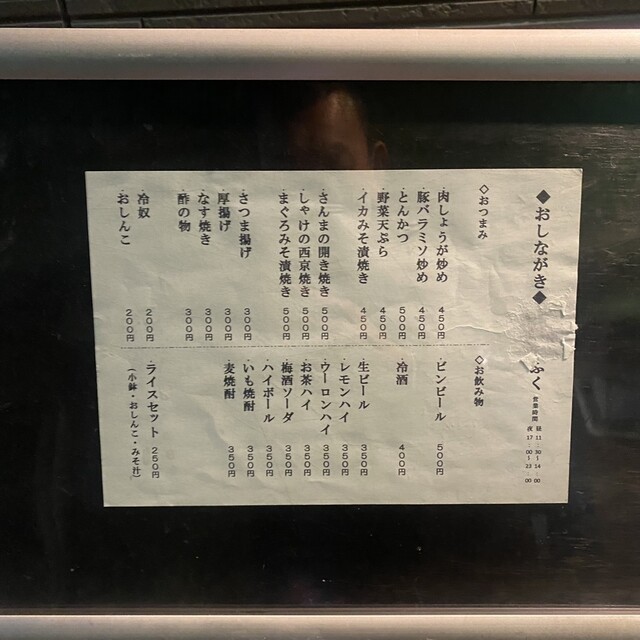 ◆おしながき◆
ふく
営業時間
昼11:30〜14:00
夜17:00〜23:00
◇おつまみ
・肉しょうが炒め 450円
・豚バラミソ炒め 450円
・とんかつ 500円
・野菜天ぷら 450円
・イカみそ漬焼き 450円
・さんまの開き焼き 500円
・しゃけの西京焼き 500円
・まぐろみそ漬焼き 500円
・さつま揚げ 300円
・厚揚げ 300円
・なす焼き 300円
・酢の物 300円
・冷奴 200円
・おしんこ 200円
◇お飲み物
・ビンビール 500円
・冷酒 400円
・生ビール 350円
・レモンハイ 350円
・ウーロンハイ 350円
・お茶ハイ 350円
・梅酒ソーダ 350円
・ハイボール 350円
・いも焼酎 350円
・麦焼酎 350円
・ライスセット 250円
(小鉢・おしんこ・みそ汁)